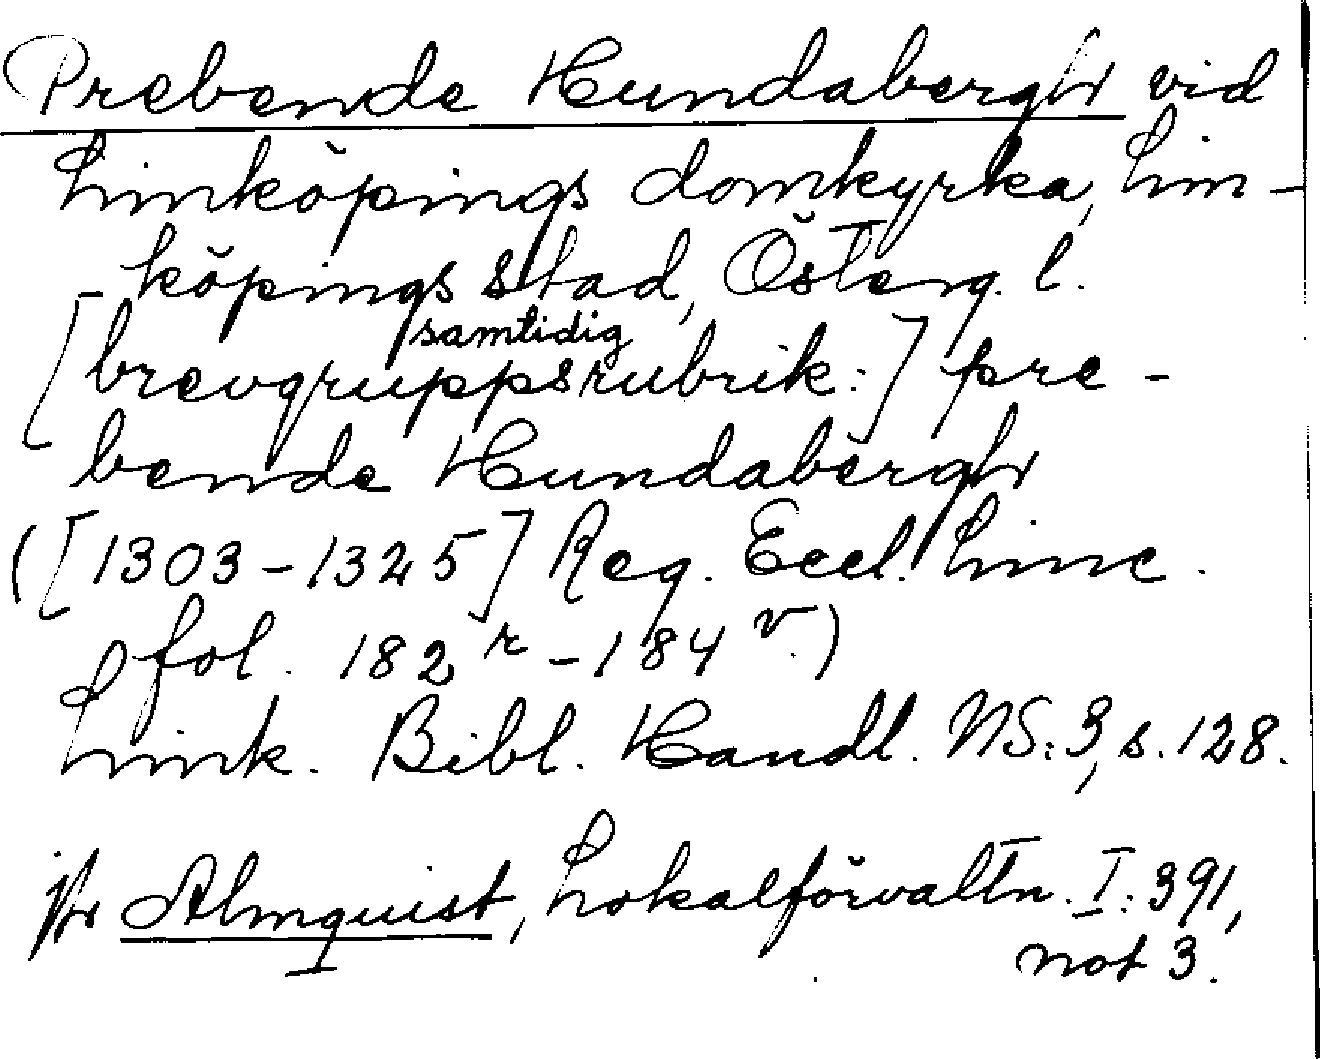 Prebende Hundabergh vid
Linköpings domkyrka, Lin-
-köpings stad, Österg. l.
samtidig
[brevgruppsrubrik:] pre-
bende Hundabergh
([1303-1325] Reg. Eccl. Linc.
fol. 182 r - 184 v.)
Link. Bibl. Handl. NS: 3, s. 128.
jfr Almquist, Lokalförvaltn. I: 391,
I
not 3.